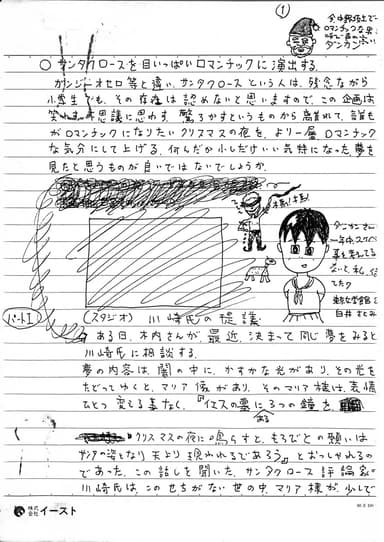 ①
全中郵指主で
ロマンチックな男と
呼び声の高い
ダンカンさん
○ サンタクロースを目いっぱいロマンチックに演出する。
ガンジーオセロ等と違い、サンタクロースという人は、残念ながら
小学生でも、その存在は認めないと思いますので、この企画は
笑わず、不思議に思わず、驚ろかすというものから離れて、誰も
がロマンチックになりたいクリスマスの夜を、より一層、ロマンチック
な気分にして上げる、何んだか少しだけいい気持になった夢を
見たと思うものが良いではないでしょうか。
ダンカンさんって
一年中、スケベな
事を考えてる
ないと、私、信
てた♡
東京女学館
白井さとみ
パートⅠ
(スタジオ) 川崎氏の提議
ある日、木内さんが、最近、決まって同じ夢をみると
川崎氏に相談する。
夢の内容は、闇の中に、かすかな光があり、その光を
たどってゆくと、マリア像があり、そのマリア様は、表情
ひとつ変える事なく、『イエスの丘にある3つの鐘を、
クリスマスの夜に鳴らすと、もろびとの願いは
サンタの姿となり天より現われるであろう』とおっしゃれるの
であった。この話しを聞いた、サンタクロース評論家の
川崎氏は、このせちがない世の中、マリア様が、少しで
株式会社イースト